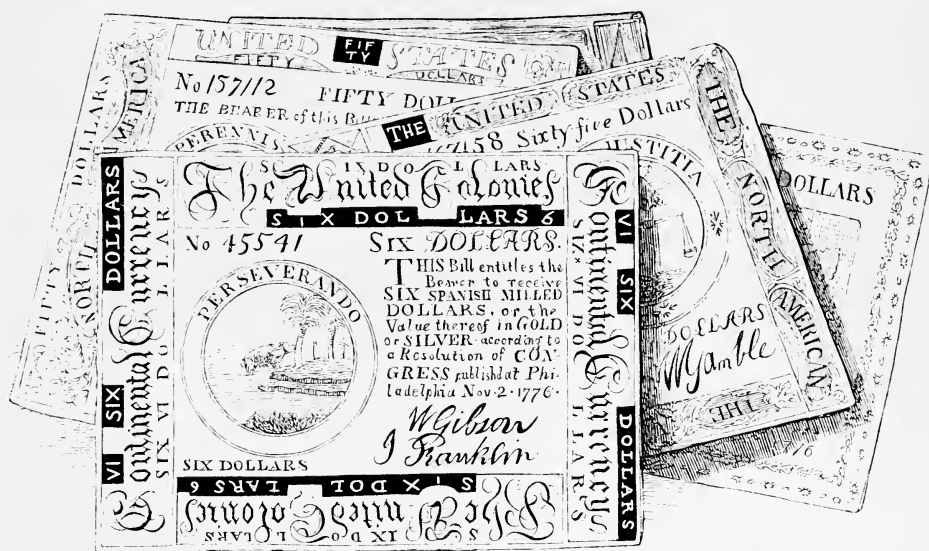 UNITED FIFTY STATES
FIFTY DOLLARS
No 157112 FIFTY DOLL
THE BEARER of this B
PERENNIS
FIFTY DOLLARS
NORTH AMERICA
THE UNITED STATES
7158 Sixty five Dollars
JUSTITIA
DOLLARS
WGamble
THE NORTH AMERICAN
THE
DOLLARS
76
SIX DOLLARS
The United Colonies
SIX DOLLARS 6
No 45541 SIX DOLLARS.
PERSEVERANDO
THIS Bill entitles the
Bearer to receive
SIX SPANISH MILLED
DOLLARS, or the
Value thereof in GOLD
or SILVER according to
a Resolution of CON-
GRESS publishd at Phi-
ladelphia Nov. 2. 1776.
W Gibson
J Franklin
SIX DOLLARS
SIX DOLLARS 6
The United Colonies
SIX DOLLARS
VI SIX DOLLARS
Continental Currency
SIX VI DOLLARS
VI SIX DOLLARS
Continental Currency
SIX VI DOLLARS